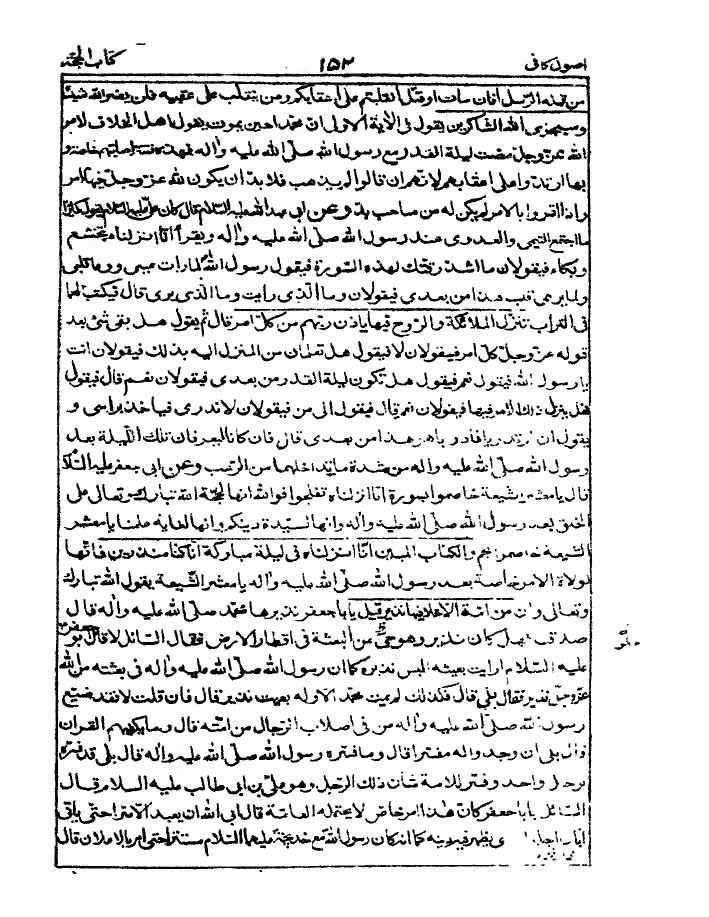 اصول کافی ۱۵۲ کتاب الحجة
من قبله الرسل افان مات اوقتل انقلبتم على اعقابكم ومن ينقلب على عقبيه فلن يضر الله شيئا
وسيجزى الله الشاكرين يقول فى الآية الاولى ان محمدا حين يموت يقول اهل الخلاف لامر
الله عز وجل مضت ليلة القدر مع رسول الله صلى الله عليه واله فهذه فتنة اصابتهم خاصة و
بها ارتدوا على اعقابهم لانهم ان قالوا لم يذهب فلا بد ان يكون لله عز وجل فيها امر
واذا اقروا بالامر لم يكن له من صاحب بد وعن ابى عبد الله عليه السلام قال كان على عليه السلام يقول كثيرا
ما اجتمع التيمى والعدوى عند رسول الله صلى الله عليه واله ويقرأ انا انزلناه بتخشع
وبكاء فيقولان ما اشد رقتك لهذه السورة فيقول رسول الله لما رات عينى ووعا قلبى
ولما يرى قلب هذا من بعدى فيقولان وما الذى رايت وما الذى يرى قال فيكتب لهما
فى التراب تنزل الملائكة والروح فيها باذن ربهم من كل امر قال ثم يقول هل بقى شئ بعد
قوله عز وجل كل امر فيقولان لا فيقول هل تعلمان من المنزل اليه بذلك فيقولان انت
يا رسول الله فيقول نعم فيقول هل تكون ليلة القدر من بعدى فيقولان نعم قال فيقول
فهل ينزل ذلك الامر فيها فيقولان نعم قال فيقول الى من فيقولان لا ندرى فياخذ براسى و
يقول ان لم تدريا فادريا هو هذا من بعدى قال فان كانا ليعرفان تلك الليلة بعد
رسول الله صلى الله عليه واله من شدة ما يداخلهما من الرعب وعن ابى جعفر عليه السلام
قال يا معشر الشيعة خاصموا بسورة انا انزلناه تفلجوا فوالله انها لحجة الله تبارك وتعالى على
الخلق بعد رسول الله صلى الله عليه واله وانها لسيدة دينكم وانها لغاية علمنا يا معشر
الشيعة خاصموا بحم والكتاب المبين انا انزلناه فى ليلة مباركة انا كنا منذرين فانها
لولاة الامر خاصة بعد رسول الله صلى الله عليه واله يا معشر الشيعة يقول الله تبارك
وتعالى وان من امة الا خلا فيها نذير قيل يا با جعفر نذيرها محمد صلى الله عليه واله قال
صدقت فهل كان نذير وهو حى من البعثة فى اقطار الارض فقال السائل لا قال ابو جعفر
عليه السلام ارايت بعيثه اليس نذيره كما ان رسول الله صلى الله عليه واله فى بعثته من الله
عز وجل نذير فقال بلى قال فكذلك لم يمت محمد الا وله بعيث نذير قال فان قلت لا فقد ضيع
رسول الله صلى الله عليه واله من فى اصلاب الرجال من امته قال وما يكفيهم القران
قال بلى ان وجدوا له مفسرا قال وما فسره رسول الله صلى الله عليه واله قال بلى قد فسره
لرجل واحد وفسر للامة شأن ذلك الرجل وهو على بن ابى طالب عليه السلام قال
السائل يا با جعفر كان هذا امر خاص لا يحتمله العامة قال ابى الله ان يعبد الا سرا حتى ياتى
ابان اجله الذى يظهر فيه دينه كما انه كان رسول الله مع خديجة عليهما السلام مستترا حتى امر بالاعلان قال